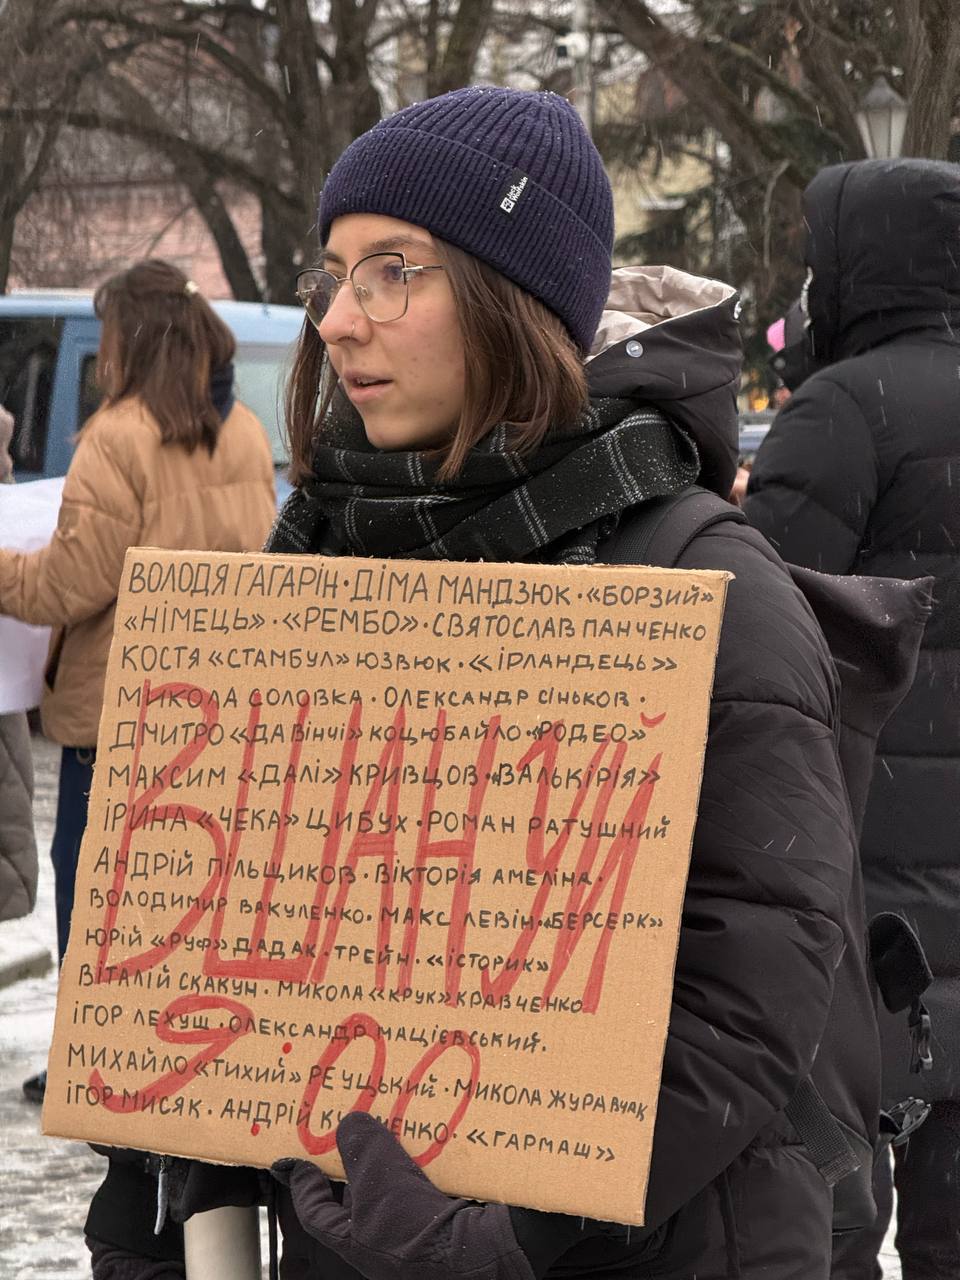 Jack Wolfskin
ВОЛОДЯ ГАГАРІН · ДІМА МАНДЗЮК · «БОРЗИЙ»
«НІМЕЦЬ» · «РЕМБО» · СВЯТОСЛАВ ПАНЧЕНКО
КОСТЯ «СТАМБУЛ» ЮЗВЮК · «ІРЛАНДЕЦЬ»
МИКОЛА СОЛОВКА · ОЛЕКСАНДР СІНЬКОВ ·
ДМИТРО «ДА ВІНЧІ» КОЦЮБАЙЛО · «РОДЕО»
МАКСИМ «ДАЛІ» КРИВЦОВ · «ВАЛЬКІРІЯ»
ІРИНА «ЧЕКА» ЦИБУХ · РОМАН РАТУШНИЙ
АНДРІЙ ПІЛЬЩИКОВ · ВІКТОРІЯ АМЕЛІНА ·
ВОЛОДИМИР ВАКУЛЕНКО · МАКС ЛЕВІН · «БЕРСЕРК»
ЮРІЙ «РУФ» ДАДАК · ТРЕЙН · «ІСТОРИК»
ВІТАЛІЙ СКАКУН · МИКОЛА «КРУК» КРАВЧЕНКО
ІГОР ЛЕХУШ · ОЛЕКСАНДР МАЦІЄВСЬКИЙ.
МИХАЙЛО «ТИХИЙ» РЕУЦЬКИЙ · МИКОЛА ЖУРАВЧАК
ІГОР МИСЯК · АНДРІЙ · «ГАРМАШ»
ВШАНУЙ
9:00